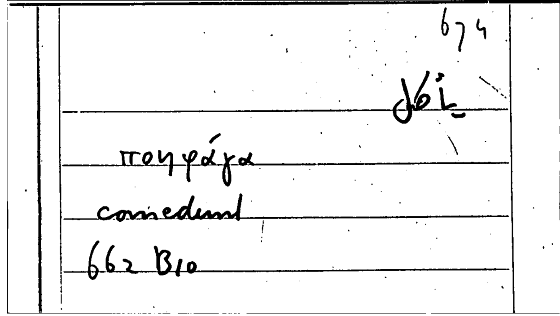 674
ποηφάγα
comedunt
662 B10